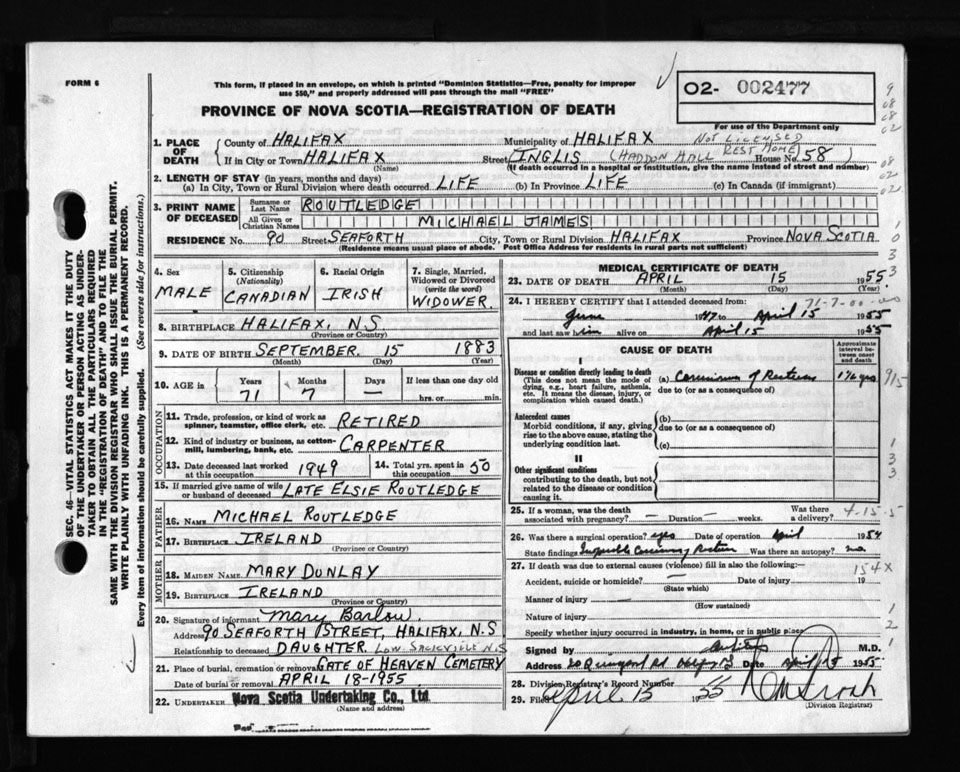 FORM 6
This form, if placed in an envelope, on which is printed "Dominion Statistics—Free, penalty for improper
use $50," and properly addressed will pass through the mail "FREE"
PROVINCE OF NOVA SCOTIA—REGISTRATION OF DEATH
02- 002477
For use of the Department only
1. PLACE OF DEATH County of HALIFAX Municipality of HALIFAX NOT LICENSED
If in City or Town HALIFAX Street INGLIS (HADDON HALL REST HOME) House No. 58
(Name) (If death occurred in a hospital or institution, give the name instead of street and number)
2. LENGTH OF STAY (in years, months and days)
(a) In City, Town or Rural Division where death occurred LIFE (b) In Province LIFE (c) In Canada (if immigrant)
3. PRINT NAME OF DECEASED Surname or Last Name ROUTLEDGE
All Given or Christian Names MICHAEL JAMES
RESIDENCE No. 90 Street SEAFORTH City, Town or Rural Division HALIFAX Province NOVA SCOTIA
(Residence means usual place of abode. Post Office Address for residents in rural parts not sufficient)
4. Sex MALE
5. Citizenship (Nationality) CANADIAN
6. Racial Origin IRISH
7. Single, Married, Widowed or Divorced (write the word) WIDOWER
8. BIRTHPLACE HALIFAX, N.S
(Province or Country)
9. DATE OF BIRTH SEPTEMBER 15 1883
(Month) (Day) (Year)
10. AGE in Years Months Days If less than one day old
71 7 — hrs. or min.
OCCUPATION
11. Trade, profession, or kind of work as spinner, teamster, office clerk, etc. RETIRED
12. Kind of industry or business, as cotton-mill, lumbering, bank, etc. CARPENTER
13. Date deceased last worked at this occupation 1949 14. Total yrs. spent in this occupation 50
15. If married give name of wife or husband of deceased LATE ELSIE ROUTLEDGE
FATHER
16. NAME MICHAEL ROUTLEDGE
17. BIRTHPLACE IRELAND
(Province or Country)
MOTHER
18. MAIDEN NAME MARY DUNLAY
19. BIRTHPLACE IRELAND
(Province or Country)
20. Signature of informant Mary Barlow
Address 90 SEAFORTH STREET, HALIFAX, N.S
Relationship to deceased DAUGHTER LOW SACKVILLE N.S
21. Place of burial, cremation or removal GATE OF HEAVEN CEMETERY
Date of burial or removal APRIL 18-1955
22. UNDERTAKER Nova Scotia Undertaking Co., Ltd.
(Name and address)
MEDICAL CERTIFICATE OF DEATH
23. DATE OF DEATH APRIL 15 1955
(Month) (Day) (Year)
24. I HEREBY CERTIFY that I attended deceased from:
June 1947 to April 15 1955
and last saw him alive on April 15 1955
CAUSE OF DEATH
Approximate interval between onset and death
I
Disease or condition directly leading to death
(This does not mean the mode of dying, e.g., heart failure, asthenia, etc. It means the disease, injury, or complication which caused death.)
(a) Carcinoma of Rectum
due to (or as a consequence of)
Antecedent causes
Morbid conditions, if any, giving rise to the above cause, stating the underlying condition last.
(b)
due to (or as a consequence of)
(c)
II
Other significant conditions
contributing to the death, but not related to the disease or condition causing it.
25. If a woman, was the death associated with pregnancy? — Duration — weeks. Was there a delivery?
4-15-5
26. Was there a surgical operation? yes Date of operation April 1954
State findings Inoperable Carcinoma Rectum Was there an autopsy? no
27. If death was due to external causes (violence) fill in also the following:— 154X
Accident, suicide or homicide? — Date of injury 19
(State which)
Manner of injury —
(How sustained)
Nature of injury
Specify whether injury occurred in industry, in home, or in public place
Signed by M.D.
Address Date April 15 1955
28. Division Registrar's Record Number
29. Filed April 15 1955
(Division Registrar)
SEC. 46—VITAL STATISTICS ACT MAKES IT THE DUTY
OF THE UNDERTAKER OR PERSON ACTING AS UNDER-
TAKER TO OBTAIN ALL THE PARTICULARS REQUIRED
IN THE "REGISTRATION OF DEATH" AND TO FILE THE
SAME WITH THE DIVISION REGISTRAR WHO SHALL ISSUE THE BURIAL PERMIT.
WRITE PLAINLY WITH UNFADING INK. THIS IS A PERMANENT RECORD.
Every item of information should be carefully supplied. (See reverse side for instructions.)